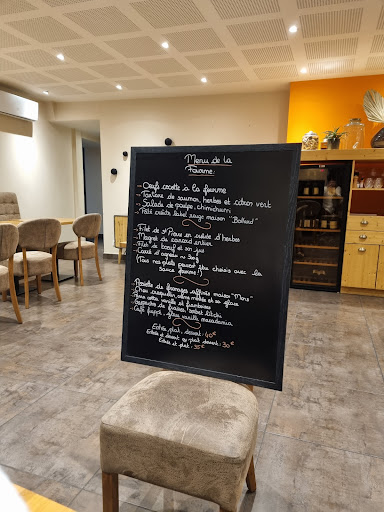 Menu de la
Favorme
- Oeufs cocotte à la fourme
- Tartare de saumon, herbes et citron vert
- Salade de poulpe, chimichurri
- Pâté croûte label rouge maison "Bolland"
- Filet de St Pierre en croûte d'herbes
- Magret de canard entier
- Filet de boeuf et son jus
- Carré d'agneau
(Tous nos plats peuvent être choisis avec la
sauce fourme!)
- Assiette de fromages affinés maison "Mons"
- Chou craquelin,
vanille et framboises
- fraises, sorbet litchi
- Café frappé, glace vanille macadamia
Entrée, plat, dessert: 40€
Entrée et dessert ou plat, dessert: 30€
Entrée et plat: 35€